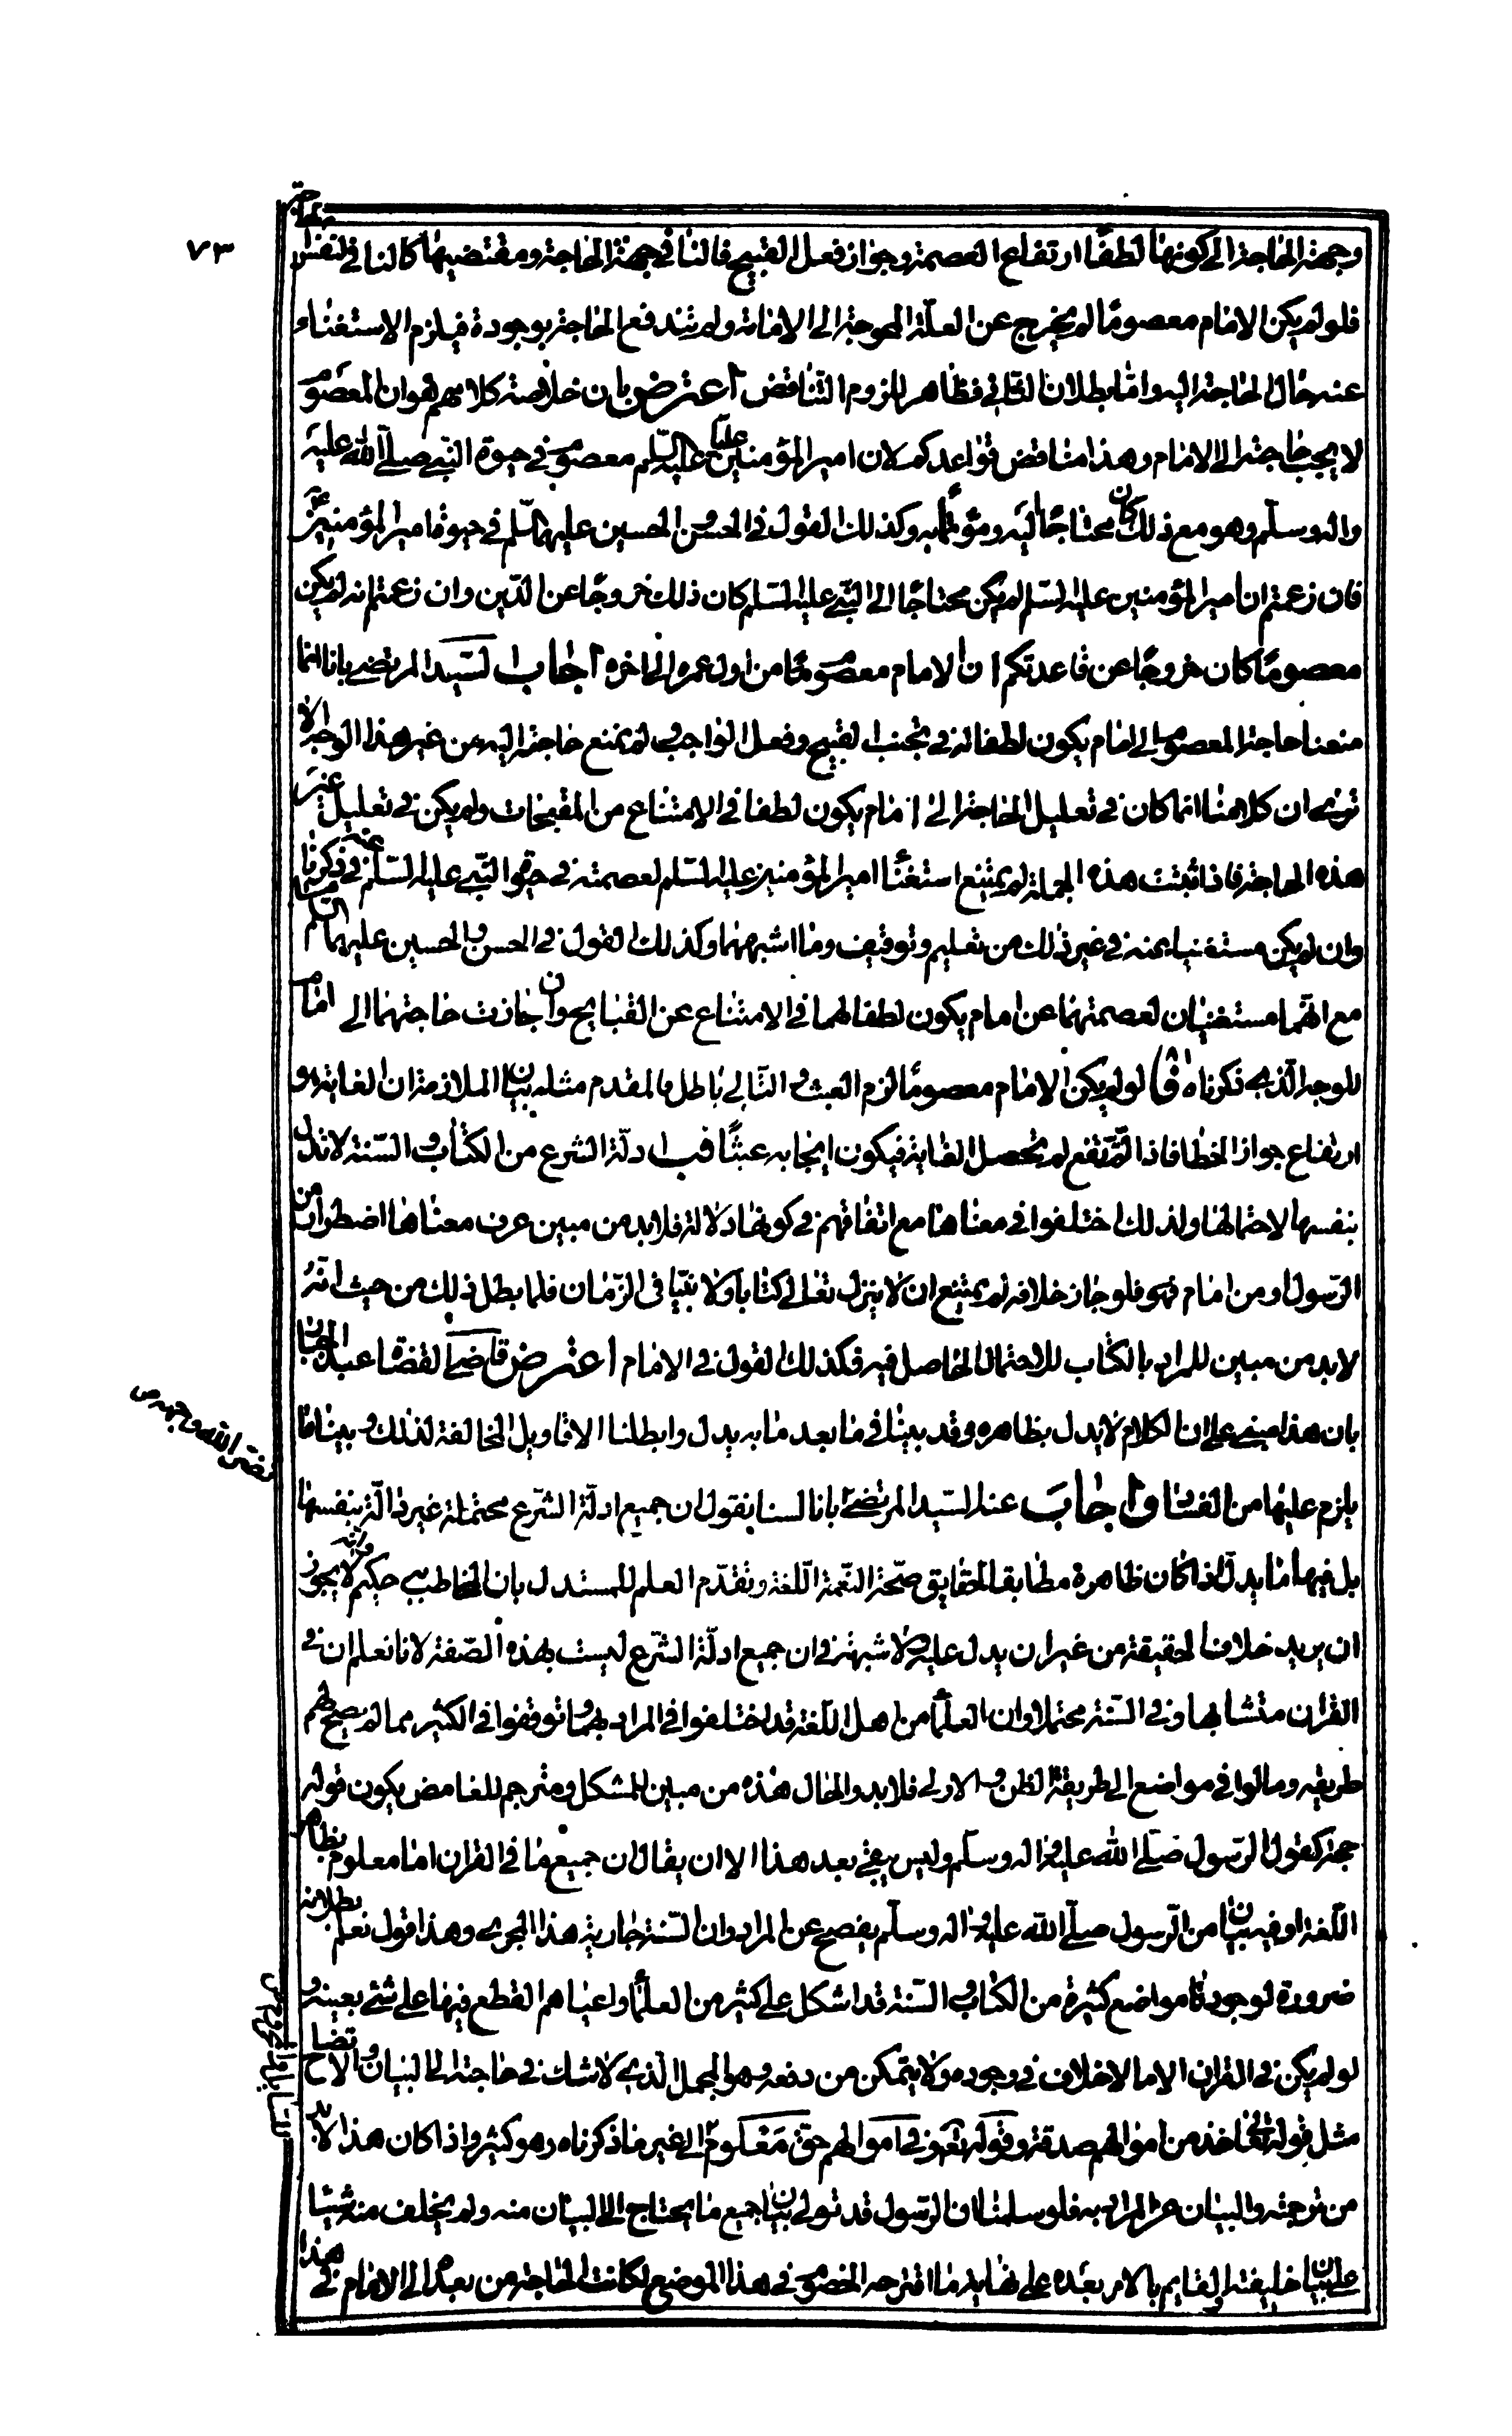 ٧٣
وجهة الحاجة الى كونها لطفا ارتفاع العصمة وجواز فعل القبيح فالنافي جهة الحاجة ومقتضيها كالنافي لنفسها
فلو لم يكن الامام معصوما لم يخرج عن العلة المحوجة الى الامامة ولم تندفع الحاجة بوجوده فيلزم الاستغناء
عنه حال الحاجة اليه واما بطلان التالي فظاهر للزوم التناقض اعترض بان خلاصة كلامهم هو ان المعصوم
لا يجب حاجته الى الامام وهذا مناقض قواعدكم لان امير المؤمنين عليا عليه السلم معصوم في حيوة النبي صلى الله عليه
واله وسلم وهو مع ذلك كان محتاجا اليه ومؤتما به وكذلك القول في الحسن والحسين عليهما السلم في حيوة امير المؤمنين ع
فان زعمتم ان امير المؤمنين عليه السلم لم يكن محتاجا الى النبي عليه السلم كان ذلك خروجا عن الدين وان زعمتم انه لم يكن
معصوما كان خروجا عن قاعدتكم ان الامام معصوم من اول عمره الى اخره اجاب السيد المرتضى بانا انما
منعنا حاجة المعصوم الى امام يكون لطفا له في تجنب القبيح وفعل الواجب ولم نمنع حاجته اليه من غير هذا الوجه الا
ترى ان كلامنا انما كان في تعليل الحاجة الى امام يكون لطفا في الامتناع من المقبحات ولم يكن في تعليل غير
هذه الحاجة فاذا ثبتت هذه الجملة لم يمتنع استغناء امير المؤمنين عليه السلم لعصمته في حيوة النبي عليه السلم عنه في ذكرنا
وان لم يكن مستغنيا عنه في غير ذلك من تعليم وتوقيف وما اشبههما وكذلك القول في الحسن والحسين عليهما السلم
مع انهما مستغنيان لعصمتهما عن امام يكون لطفا لهما في الامتناع عن القبايح وان جازت حاجتهما الى امام
للوجه الذي ذكرناه لو لم يكن الامام معصوما لزم العبث والتالي باطل فالمقدم مثله بيان الملازمة ان الغاية هو
ارتفاع جواز الخطا فاذا لم يرتفع لم تحصل الغاية فيكون ايجابه عبثا ادلة الشرع من الكتاب والسنة لا تدل
بنفسها لاحتمالها ولذلك اختلفوا في معناها مع اتفاقهم في كونها دلالة فلا بد من مبين عرف معناها اضطرارا من
الرسول او من امام فهو فلو جاز خلافه لم يمتنع ان لا ينزل تعالى كتابا ولا نبيا في الزمان فلما بطل ذلك من حيث انه
لا بد من مبين للمراد بالكتاب للاحتمال الحاصل فيه فكذلك القول في الامام اعترض قاضي القضاة عبد الجبار
بان هذا مبني على ان الكلام لا يدل بظاهره وقد بينا في ما بعد ما به يدل وابطلنا الاقاويل المخالفة لذلك وبينا ما
يلزم عليها من الفساد واجاب عنه السيد المرتضى بانا لسنا نقول ان جميع ادلة الشرع محتملة غير دالة بنفسها
بل فيها ما يدل اذا كان ظاهره مطابقا لحقايق اللغة وتقدم العلم للمستدل بان المخاطب حكيم وانه لا يجوز
ان يريد خلاف الحقيقة من غير ان يدل عليه ولا شبهة في ان جميع ادلة الشرع ليست بهذه الصفة لانا نعلم ان في
القران متشابها وفي السنة محتملا وان العلماء من اهل اللغة قد اختلفوا في المراد بهما وتوقفوا في الكثير مما لم يصح لهم
طريقه ومالوا في مواضع الى طريقة الظن والاولى فلا بد والحال هذه من مبين للمشكل ومترجم للغامض يكون قوله
حجة كقول الرسول صلى الله عليه واله وسلم وليس يبقى بعد هذا الا ان يقال ان جميع ما في القران اما معلوم بظاهر
اللغة او فيه بيان من الرسول صلى الله عليه واله وسلم يفصح عن المراد وان السنة جارية هذا المجرى وهذا قول نعلم بطلانه
ضرورة لوجودنا مواضع كثيرة من الكتاب والسنة قد اشكل على كثير من العلماء واعياهم القطع فيها على شئ بعينه و
لو لم يكن في القران الا ما لا خلاف في وجوده ولا يتمكن من دفعه وهو المجمل الذي لا شك في حاجته الى البيان والايضاح
مثل قوله تعالى خذ من اموالهم صدقة وقوله تعالى وفي اموالهم حق معلوم الى غير ما ذكرناه وهو كثير واذا كان هذا لا بد
من ترجمته والبيان عن المراد به فلو سلمنا ان الرسول قد تولى بيان جميع ما يحتاج الى البيان منه ولم يخلف منه شيئا
على بيان خليفته والقايم بالامر بعده على نهاية ما اقترحه الخصوم في هذا الموضع لكانت الحاجة من بعده الى الامام في هذا